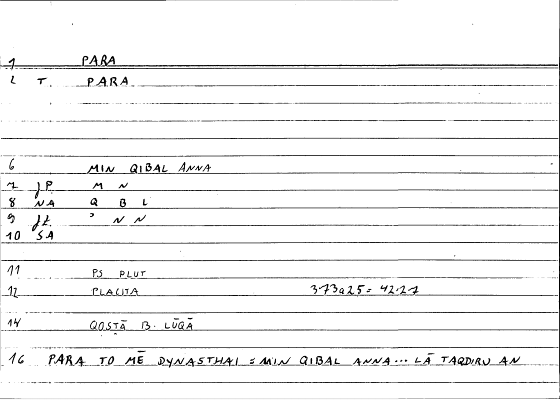 1 PARA
2 T. PARA
6 MIN QIBAL ANNA
7 JP M N
8 NA Q B L
9 JZ ʾ N N
10 SA
11 PS PLUT
12 PLACITA 373a25 = 42.27
14 QOSṬĀ B. LŪQĀ
16 PARA TO MĒ DYNASTHAI = MIN QIBAL ANNA... LĀ TAQDIRU AN